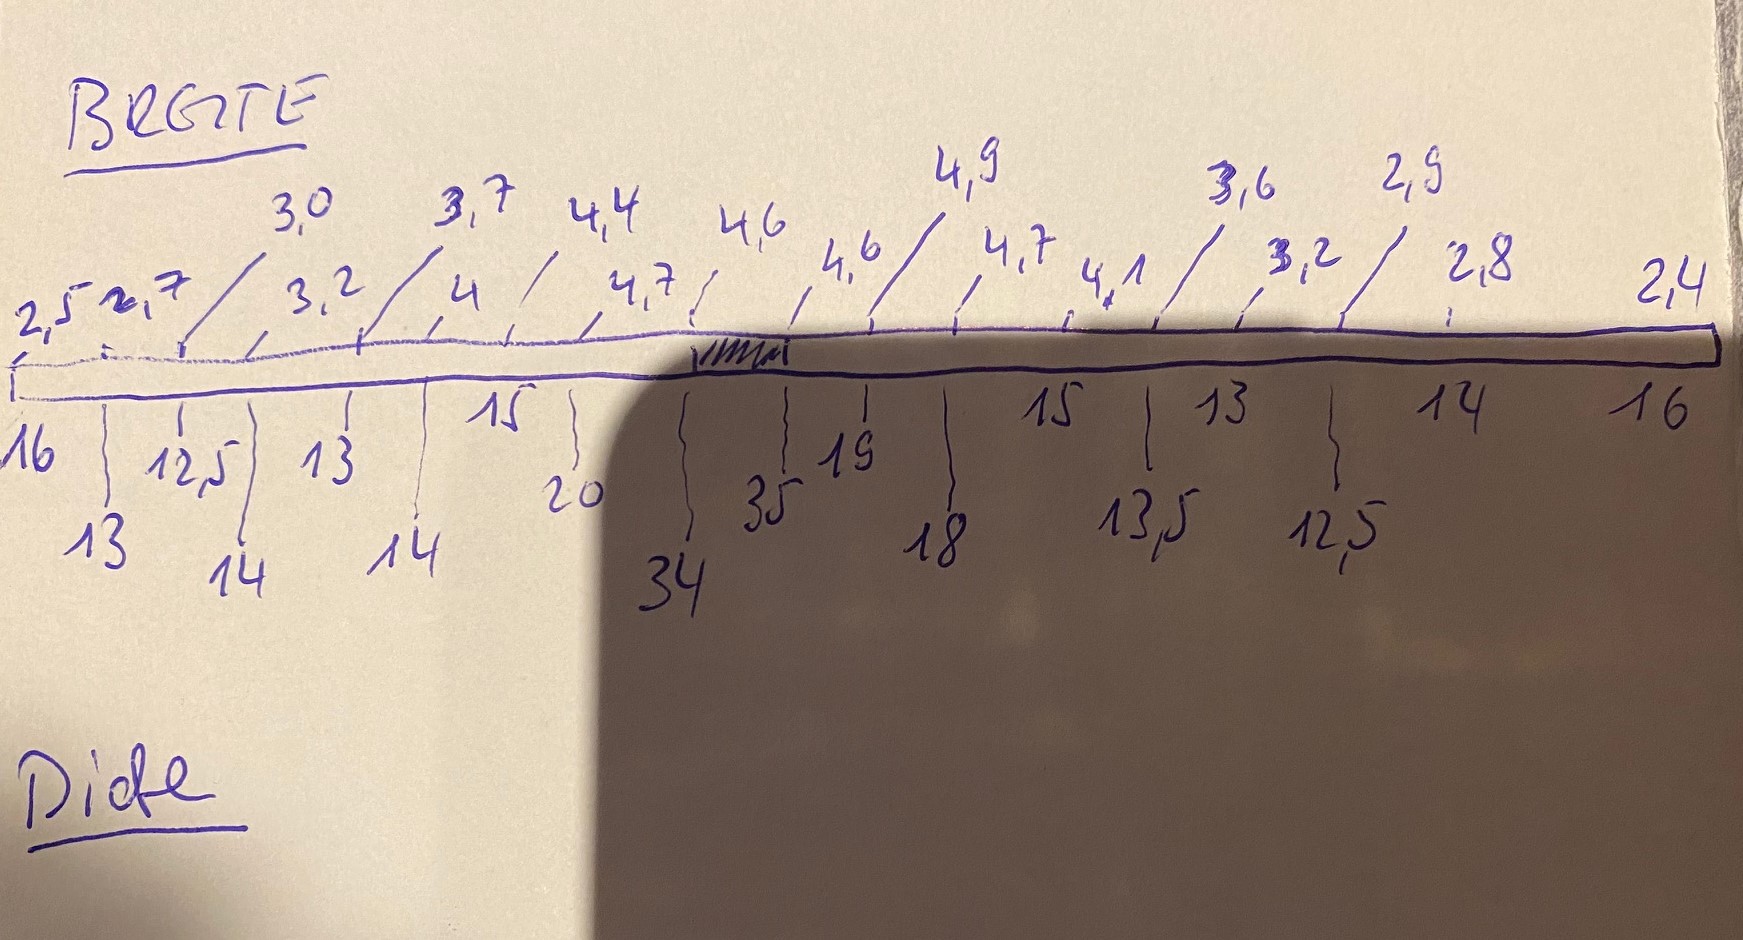 BREITE
2,5 2,7 3,0 3,2 3,7 4 4,4 4,7 4,6 4,6 4,9 4,7 4,1 3,6 3,2 2,9 2,8 2,4
16 13 12,5 14 13 14 15 20 34 35 19 18 15 13,5 13 12,5 14 16
Dicke